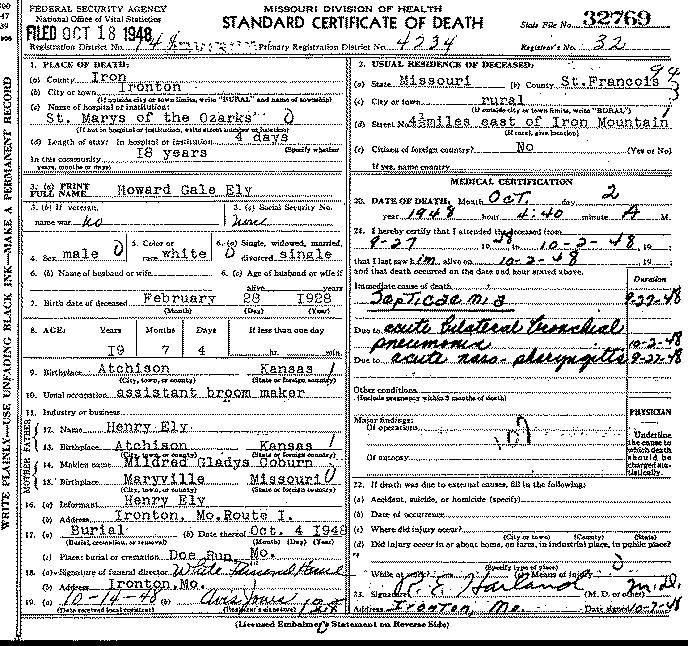 FEDERAL SECURITY AGENCY
National Office of Vital Statistics
MISSOURI DIVISION OF HEALTH
STANDARD CERTIFICATE OF DEATH
State File No. 32769
FILED OCT 18 1948
Registration District No. Primary Registration District No. 4234 Registrar's No. 32
WRITE PLAINLY—USE UNFADING BLACK INK—MAKE A PERMANENT RECORD
1. PLACE OF DEATH:
(a) County Iron
(b) City or town Ironton
(If outside city or town limits, write "RURAL" and name of township)
(c) Name of hospital or institution:
St. Marys of the Ozarks
(If not in hospital or institution, write street number or location)
(d) Length of stay: In hospital or institution 4 days
(Specify whether
In this community 18 years
years, months or days)
3. (a) PRINT FULL NAME Howard Gale Ely
3. (b) If veteran, name war no
3. (c) Social Security No. none
4. Sex male
5. Color or race white
6. (a) Single, widowed, married, divorced single
6. (b) Name of husband or wife
6. (c) Age of husband or wife if alive years
7. Birth date of deceased February 28 1928
(Month) (Day) (Year)
8. AGE: Years Months Days If less than one day
19 7 4 hr. min.
9. Birthplace Atchison Kansas
(City, town, or county) (State or foreign country)
10. Usual occupation assistant broom maker
11. Industry or business
FATHER
12. Name Henry Ely
13. Birthplace Atchison Kansas
(City, town, or county) (State or foreign country)
MOTHER
14. Maiden name Mildred Gladys Coburn
15. Birthplace Maryville Missouri
(City, town, or county) (State or foreign country)
16. (a) Informant Henry Ely
(b) Address Ironton, Mo. Route I.
17. (a) Burial (b) Date thereof Oct. 4 1948
(Burial, cremation, or removal) (Month) (Day) (Year)
(c) Place: burial or cremation Doe Run, Mo.
18. (a) Signature of funeral director White Funeral Home
(b) Address Ironton, Mo.
19. (a) 10-14-48 (b) Avis Jones
(Date received local registrar) (Registrar's signature)
2. USUAL RESIDENCE OF DECEASED:
(a) State Missouri (b) County St. Francois
(c) City or town rural
(If outside city or town limits, write "RURAL")
(d) Street No. 4½ miles east of Iron Mountain
(If rural, give location)
(e) Citizen of foreign country? No (Yes or No)
If yes, name country
MEDICAL CERTIFICATION
20. DATE OF DEATH: Month Oct. day 2
year 1948 hour 4:40 minute A M.
21. I hereby certify that I attended the deceased from
9-27 1948 10-2-48 19
that I last saw him alive on 10-2-48 19
and that death occurred on the date and hour stated above.
Duration
Immediate cause of death
Septicaemia 9-27-48
Due to acute bilateral bronchial
pneumonia 10-2-48
Due to acute naso-pharyngitis 9-27-48
Other conditions
(Include pregnancy within 3 months of death)
PHYSICIAN
Major findings:
Of operations
Of autopsy
Underline the cause to which death should be charged statistically.
22. If death was due to external causes, fill in the following:
(a) Accident, suicide, or homicide (specify)
(b) Date of occurrence
(c) Where did injury occur?
(City or town) (County) (State)
(d) Did injury occur in or about home, on farm, in industrial place, in public place?
(Specify type of place)
While at work? (e) Means of injury
23. Signature R. E. Harland M.D.
(M. D. or other)
Address Ironton, Mo. Date signed 10-7-48
(Licensed Embalmer's Statement on Reverse Side)